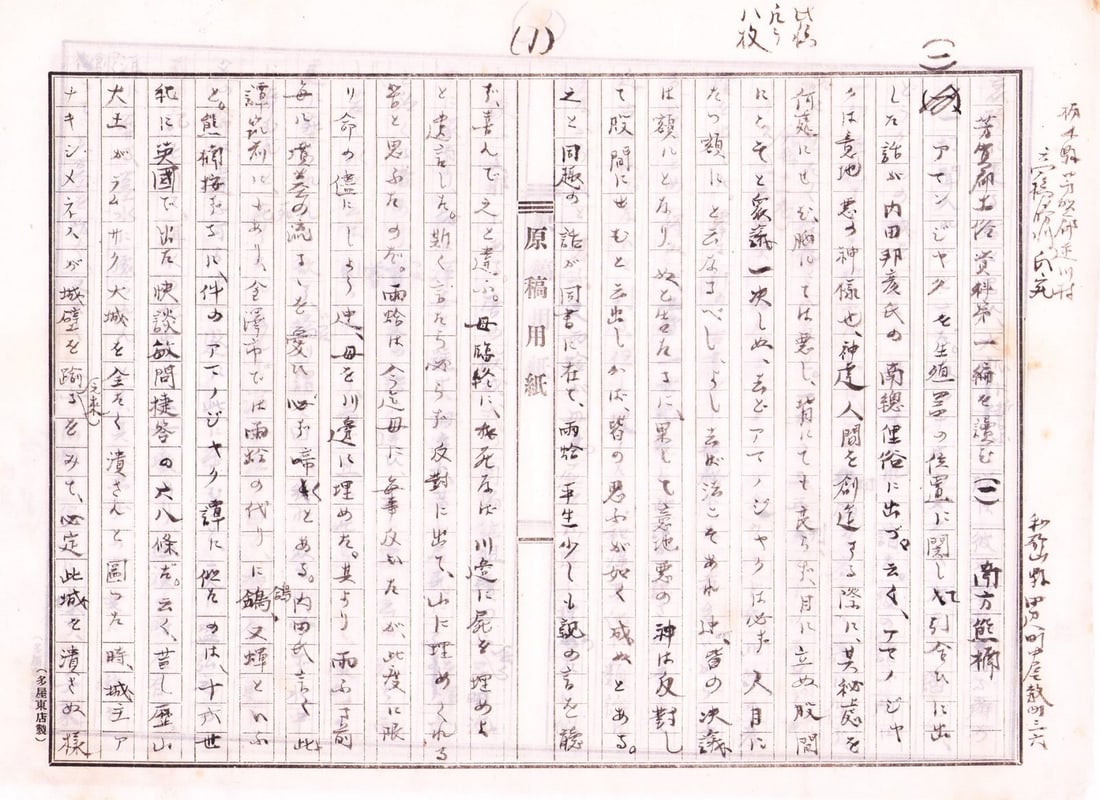 此稿
凡そ
八枚
(1)
(一)
栃木縣芳賀郡逆川村
和歌山縣田辺町中屋敷町三六
芳賀郡土俗資料第一編を讀む(一) 南方熊楠
アマンジャクを生殖器の位置に関して引合ひに出
した話が内田邦彦氏の南總俚俗に出づ。云く、アマノジャ
クは意地悪の神様也、神達人間を創造する際に、其秘處を
何處にせむ、胸にては悪し、背にても良らず、目に立ぬ股間
にこそと衆議一決しぬ、去どアマノジャクは必ず人目に
たつ額にと云なるべし、よし去ば法こそあれ迚、皆の決議
は額にとなりぬと告たるに、果して意地悪の神は反對し
て股間にせむと云出しかば、皆の思ふが如く成ぬとある。
之と同趣の話が同書に在て、雨蛤平生少しも親の言を聽
ず、喜んで之と違ふ。母臨終に、我死なば川邊に屍を埋めよ
と遺言した。斯く言たら必らず反對に出て、山に埋めくれる
筈と思ふたのだ。雨蛤は今迄母に毎事反いたが、此度に限
り命の儘にしよう迚、母を川邊に埋めた。其より雨ふる前
毎に墳墓の流るゝを憂ひ必ず啼くとある。内田氏言く此
譚筑前にもあり、金澤市では雨蛤の代りに鴿又輝といふ
と。熊楠按ずるに、件のアマノジャク譚に似たのは、十六世
紀に英國で出た快談敏問捷答の大八條だ。云く、昔し歴山
大王がラムサク大城を全たく潰さんと圖つた時、城主ア
ナキシメネスが城壁を踰えるをみて、必定此城を潰さぬ樣
原稿用紙
(多屋東店製)